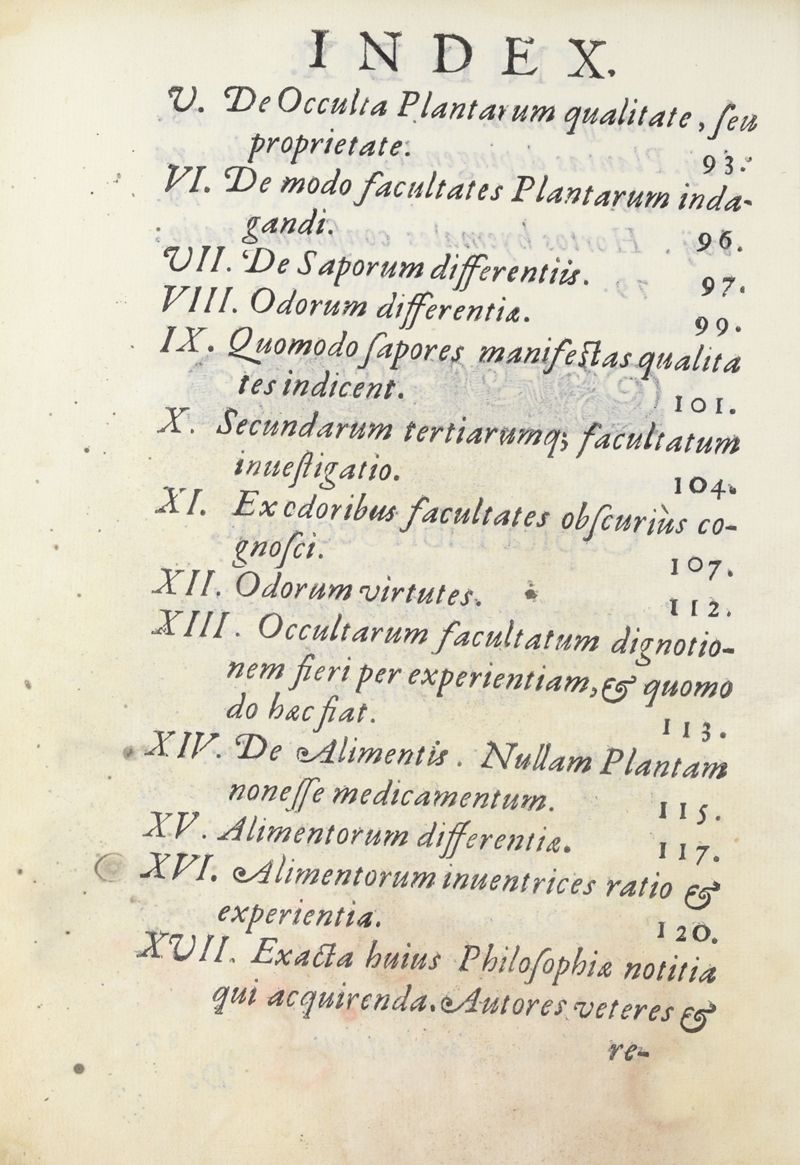 INDEX.
V. De Occulta Plantarum qualitate, ſeu
proprietate. 93.
VI. De modo facultates Plantarum inda-
gandi. 96.
VII. De Saporum differentiis. 97.
VIII. Odorum differentiæ. 99.
IX. Quomodo ſapores manifeſtas qualita
tes indicent. 101.
X. Secundarum tertiarumq; facultatum
inueſtigatio. 104.
XI. Ex odoribus facultates obſcuriùs co-
gnoſci. 107.
XII. Odorum virtutes. 112.
XIII. Occultarum facultatum dignotio-
nem fieri per experientiam, & quomo
do hæc fiat. 113.
XIV. De Alimentis. Nullam Plantam
non eſſe medicamentum. 115.
XV. Alimentorum differentiæ. 117.
XVI. Alimentorum inuentrices ratio &
experientia. 120.
XVII. Exacta huius Philoſophiæ notitia
qui acquirenda. Autores veteres &
re-